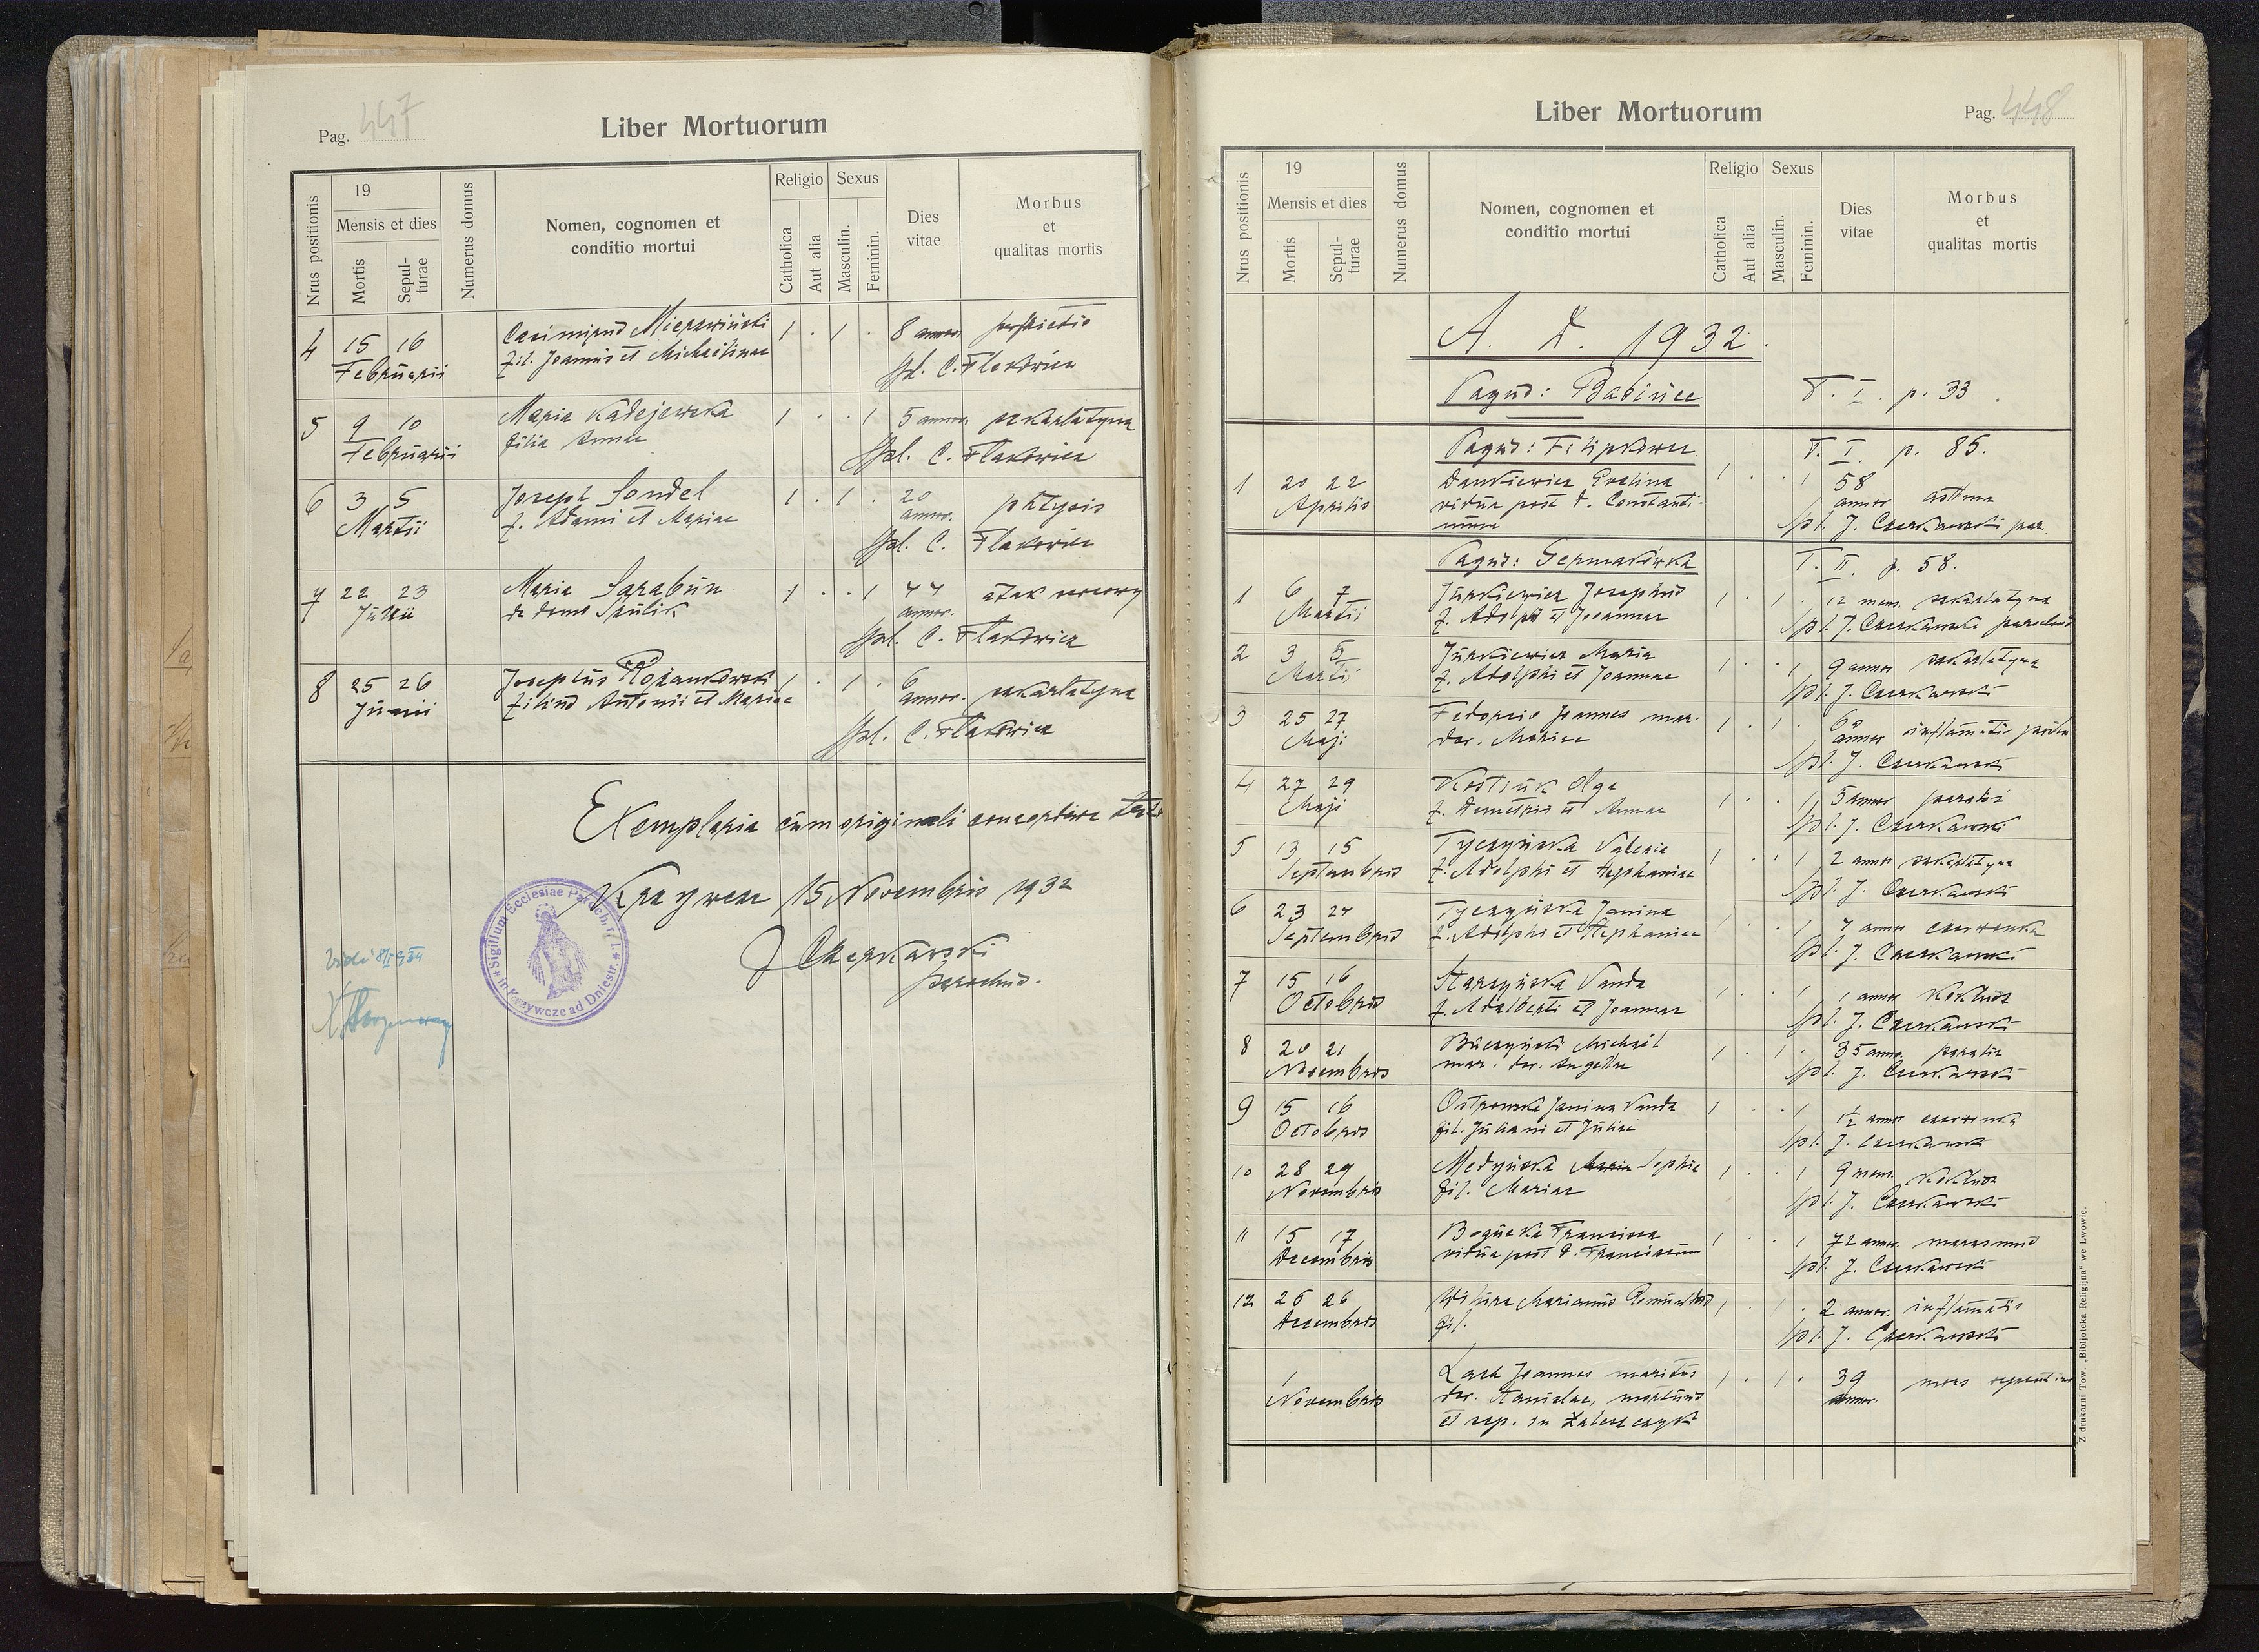 Pag. 447
Liber Mortuorum
Nrus positionis
19
Mensis et dies
Mortis
Sepul-
turae
Numerus domus
Nomen, cognomen et
conditio mortui
Religio
Catholica
Aut alia
Sexus
Masculin.
Feminin.
Dies
vitae
Morbus
et
qualitas mortis
4 15 16 Casimirus Mierzwiński 1 . 1 . 8 annor.
Februarii fil. Joannis et Michaelinae
Spl. C. Flakowicz
5 9 10 Maria Kadejewska 1 . . 1 5 annor. szkarlatyna
Februarii filia Annae
Spl. C. Flakowicz
6 3 5 Joseph Sondel 1 . 1 . 20 phtysis
Martii f. Adami et Mariae annor.
Spl. C. Flakowicz
7 22 23 Maria Sarabun 1 . . 1 44 atak sercowy
de domo Saulik annor.
Spl. C. Flakowicz
8 25 26 Josephus Rożankowski 1 . 1 . 6 szkarlatyna
Junii filius Antonii et Mariae annor.
Spl. C. Flakowicz
Exemplaria cum originali concordare
Krzywcze 15 Novembris 1932
J Czerkawski
parochus.
Sigillum Ecclesiae Paroch. r. l. in Krzywcze ad Dniestr.
Vidi
Liber Mortuorum
Pag. 448
Nrus positionis
19
Mensis et dies
Mortis
Sepul-
turae
Numerus domus
Nomen, cognomen et
conditio mortui
Religio
Catholica
Aut alia
Sexus
Masculin.
Feminin.
Dies
vitae
Morbus
et
qualitas mortis
A. D. 1932.
Pagus: Babińce T. I. p. 33.
Pagus: Filipkowce T. I. p. 85.
1 20 22 Dankiewicz Evelina 1 . . 1 58
Aprilis vidua post d. Constanti- annor astma
num spl. J. Czerkawski par.
Pagus: Germakówka T. II. p. 58.
1 6 7 Jurkiewicz Josephus 1 . 1 . 12 men. szkarlatyna
Martii f. Adolphi et Joannae spl. J. Czerkawski parochus
2 3 5 Jurkiewicz Maria 1 . . 1 9 annor szkarlatyna
Martii f. Adolphi et Joannae spl. J. Czerkawski
3 25 27 Joannes mar. 1 . 1 .
Maji der. Mariae annor
spl. J. Czerkawski
4 27 29 Kostiuk Olga 1 . . 1 5 annor
Maji f. Demetrii et Annae spl. J. Czerkawski
5 13 15 Tyczyńska Valerie 1 . . 1 2 annor szkarlatyna
Septembris f. Adolphi et Stephaniae spl. J. Czerkawski
6 23 24 Tyczyńska Janina 1 . . 1 7 annor czerwonka
Septembris f. Adolphi et Stephaniae spl. J. Czerkawski
7 15 16 Starzyńska Vanda 1 . . 1 1 annor Koklusz
Octobris f. Adalberti et Joannae spl. J. Czerkawski
8 20 21 Buczyński Michaël 1 . 1 . 35 annor.
Novembris mar. der. Angelae spl. J. Czerkawski
9 15 16 Ostrowska Janina Vanda 1 . . 1 1½ annor czerwonka
Octobris fil. Juliani et Juliae spl. J. Czerkawski
10 28 29 Medyńska Sophie 1 . . 1 9 mens. Koklusz
Novembris fil. Mariae spl. J. Czerkawski
11 15 17 Bogucka Francisca 1 . . 1 72 annor. marasmus
Decembris vidua post d. Franciscum spl. J. Czerkawski
12 25 26 Marianus Romualdus 1 . 1 . 2 annor. inflamatio
Decembris fil. spl. J. Czerkawski
1 Joannes maritus 1 . 1 . 39 mors
Novembris der. Stanislae, mortuus annor.
et sep. in Zaleszczyki
Z drukarni Tow. „Bibljoteka Religijna" we Lwowie.